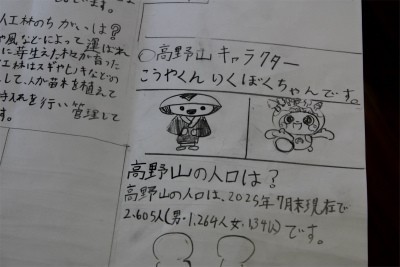 人工林のちがいは？
や風などによって運ばれ
に芽生えた木々が育った
工林はスギやヒノキなどの
して、人が苗木を植えて
手入れを行い管理して
す。
○高野山キャラクター
こうやくん いくぼくちゃんです。
高野山の人口は？
高野山の人口は、2025年7月末現在で
2,605人(男・1,264人女・1341人)です。